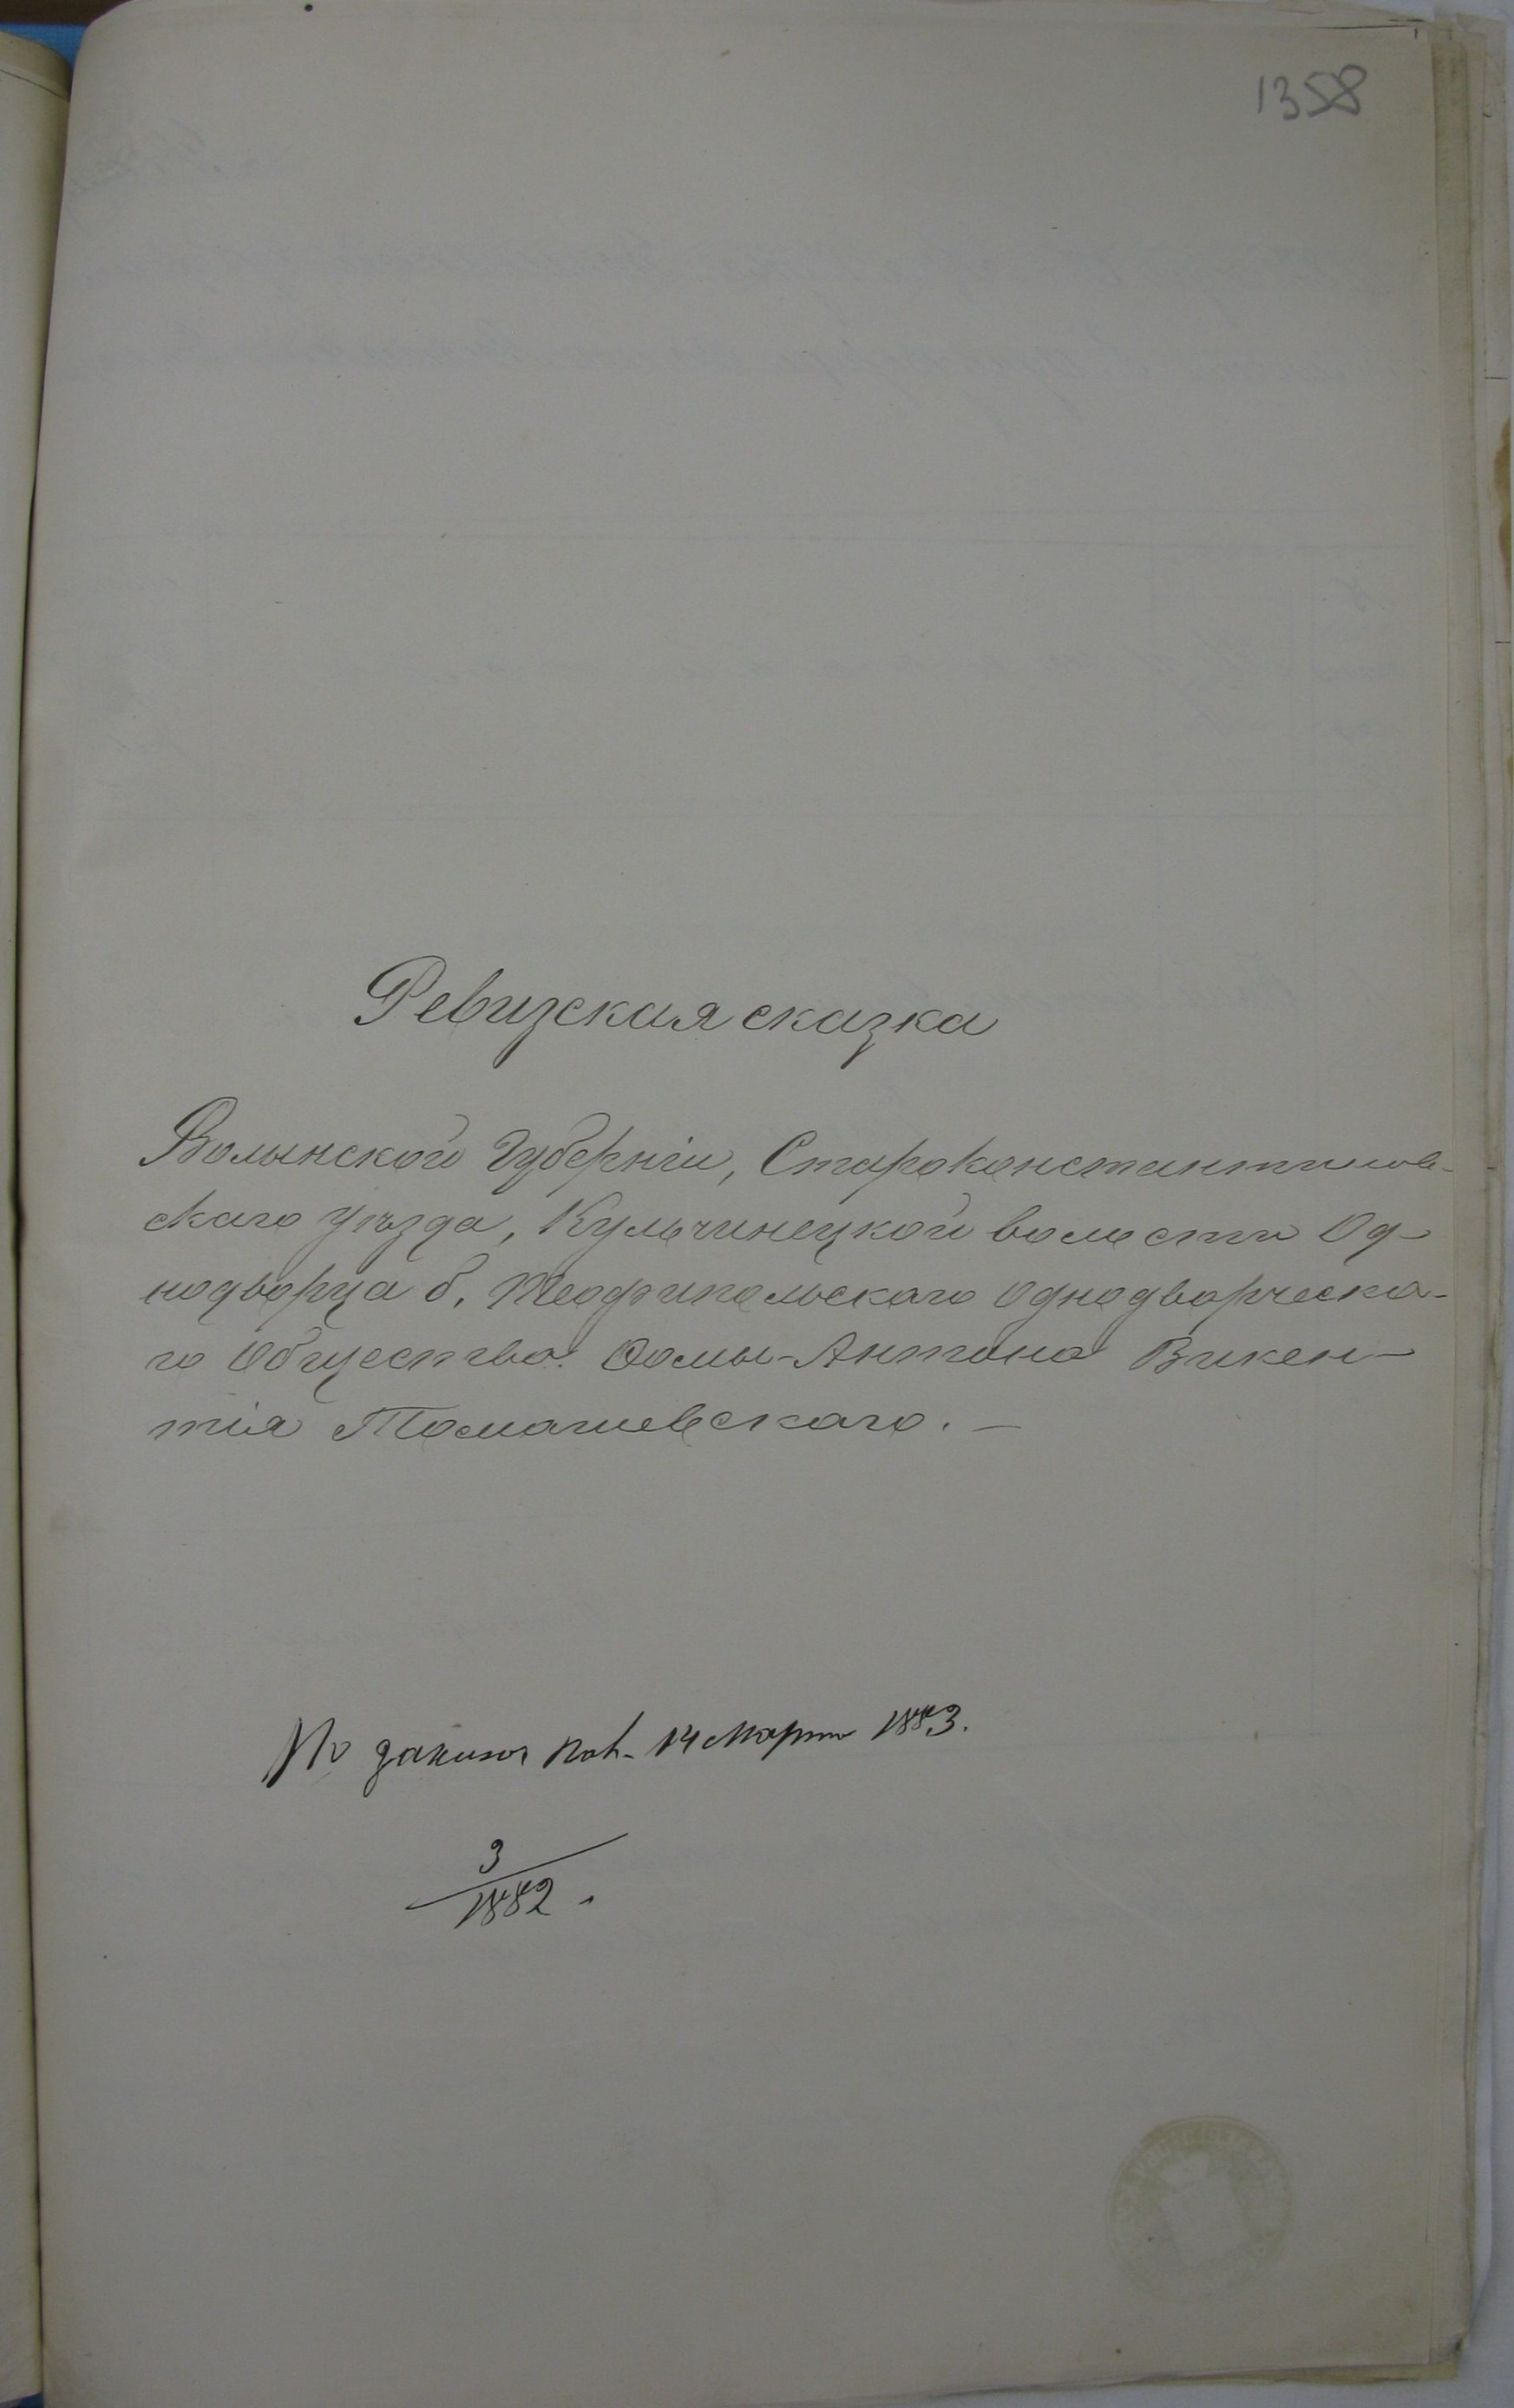 1358
Ревизская сказка
Волынской Губерніи, Староконстантинов-
скаго уѣзда, Кульчинецкой волости Од-
нодворца б. Теофипольскаго Однодворческа-
го Общества Ѳомы-Антона Викен-
тія Томашевскаго. —
По 14 Марта 1883.
3
1882.